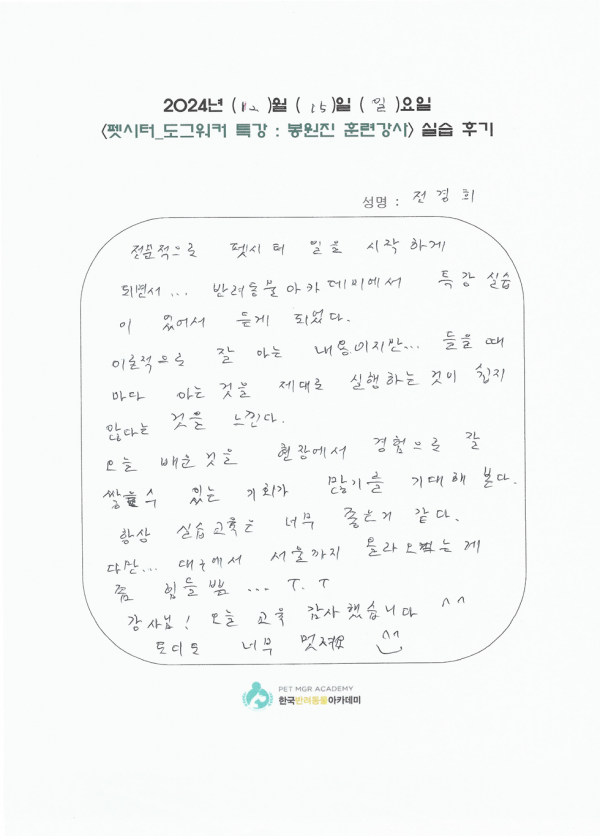 2024년 (12)월 (15)일 (일)요일
<펫시터_도그워커 특강 : 봉원진 훈련강사> 실습 후기
성명 : 전경희
전문적으로 펫시터 일을 시작하게
되면서... 반려동물아카데미에서 특강 실습
이 있어서 듣게 되었다.
이론적으로 잘 아는 내용이지만... 들을때
마다 아는 것을 제대로 실행하는 것이 쉽지
않다는 것을 느낀다.
오늘 배운 것을 현장에서 경험으로 잘
쌓을수 있는 기회가 많기를 기대해 본다.
항상 실습교육은 너무 좋은거 같다.
다만... 대구에서 서울까지 올라오는게
좀 힘들뿐 ... T.T
강사님! 오늘 교육 감사했습니다 ^^
도디도 너무 멋져요 ^^
PET MGR ACADEMY
한국반려동물아카데미